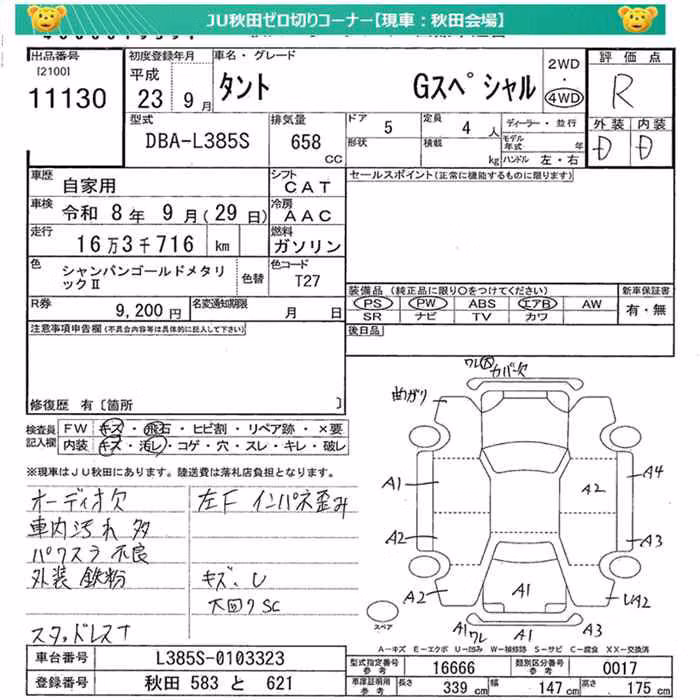 JU秋田ゼロ切りコーナー【現車：秋田会場】
出品番号
[2100]
11130
初度登録年月
平成
23 9月
車名・グレード
タント Gスペシャル
2WD
・
4WD
評価点
R
型式
DBA-L385S
排気量
658
CC
ドア 5
定員 4 人
形状
積載 kg
ディーラー・並行
モデル年式 年
ハンドル 左・右
外装 内装
D D
車歴 自家用
シフト CAT
車検 令和 8年 9月(29日)
冷房 AAC
走行 16万3千716 km
燃料 ガソリン
色 シャンパンゴールドメタリックⅡ
色替
色コード T27
R券 9,200円
名変通知期限 月 日
セールスポイント(正常に機能するものに限ります)
装備品 (純正品に限り○をつけてください)
PS PW ABS エアB AW
SR ナビ TV カワ
新車保証書
有・無
後日品
注意事項申告欄(不具合内容等は具体的に記入して下さい)
修復歴 有〔箇所 〕
検査員記入欄
FW キズ・飛石・ヒビ割・リペア跡・×要
内装 キズ・汚レ・コゲ・穴・スレ・キレ・破レ
※現車はJU秋田にあります。陸送費は落札店負担となります。
オーディオ欠
車内汚れ多
パワスラ不良
外装鉄粉
スタッドレス
左F インパネ歪み
キズ、U
大回りSC
ワレ大 カバー欠
曲がり
A1
A2
A2
A2
A4
A3
A1
UA2
A1
ワレ
A1
A3
スペア
A-キズ E-エクボ U-凹み W-補修跡 S-サビ C-腐食 XX-交換済
車台番号 L385S-0103323
登録番号 秋田 583 と 621
型式指定番号 16666
類別区分番号 0017
車庫証明用 長さ 339 cm 幅 147 cm 高さ 175 cm